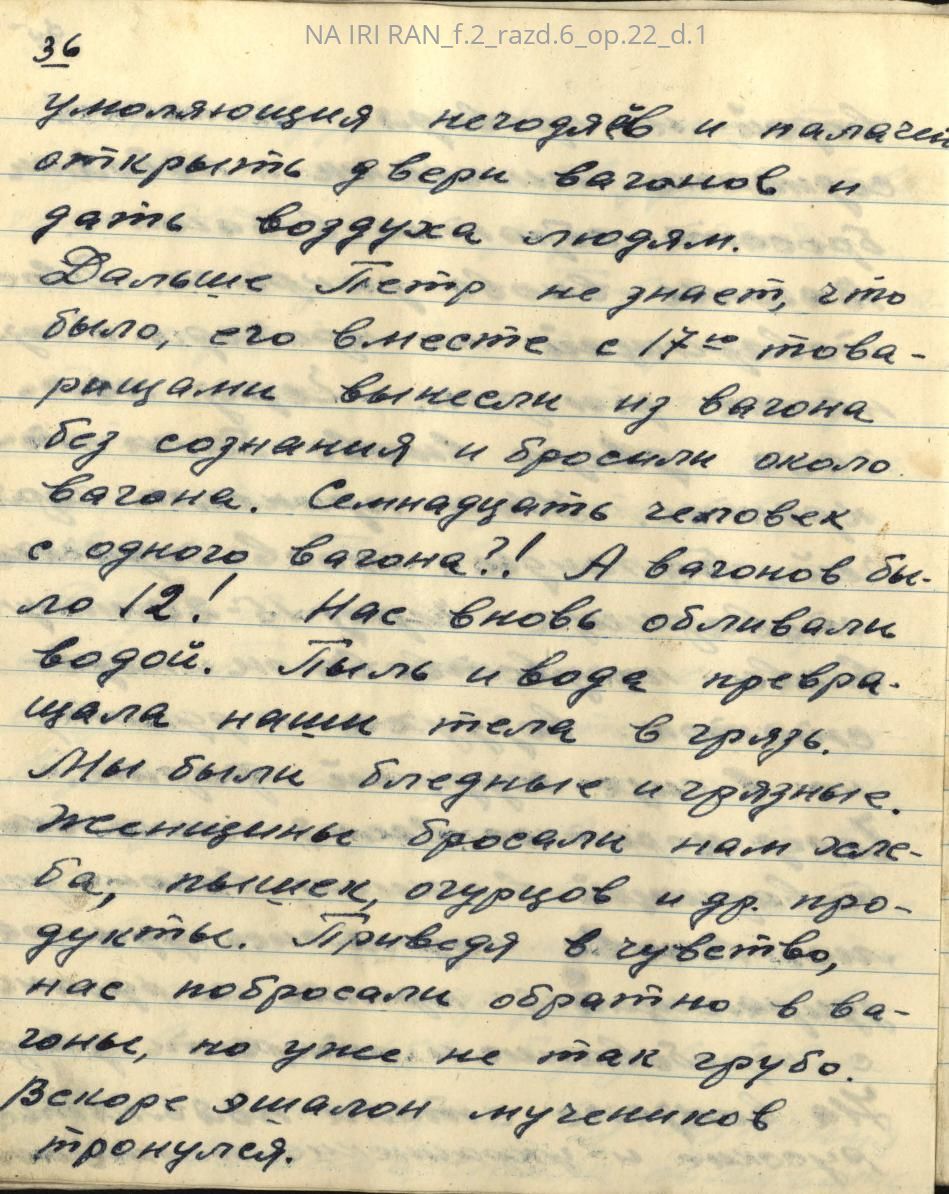 NA IRI RAN_f.2_razd.6_op.22_d.1
36
умоляющия негодяёв и палачей
открыть двери вагонов и
дать воздуха людям.
Дальше Петр не знает, что
было, его вместе с 17ю това-
рищами вынесли из вагона
без сознания и бросили около
вагона. Семнадцать человек
с одного вагона?! А вагонов бы-
ло 12! Нас вновь обливали
водой. Пыль и вода превра-
щала наши тела в грязь.
Мы были бледные и грязные.
Женщины бросали нам хле-
ба, пышек, огурцов и др. про-
дукты. Приведя в чувство,
нас побросали обратно в ва-
гоны, но уже не так грубо.
Вскоре эшалон мучеников
тронулся.